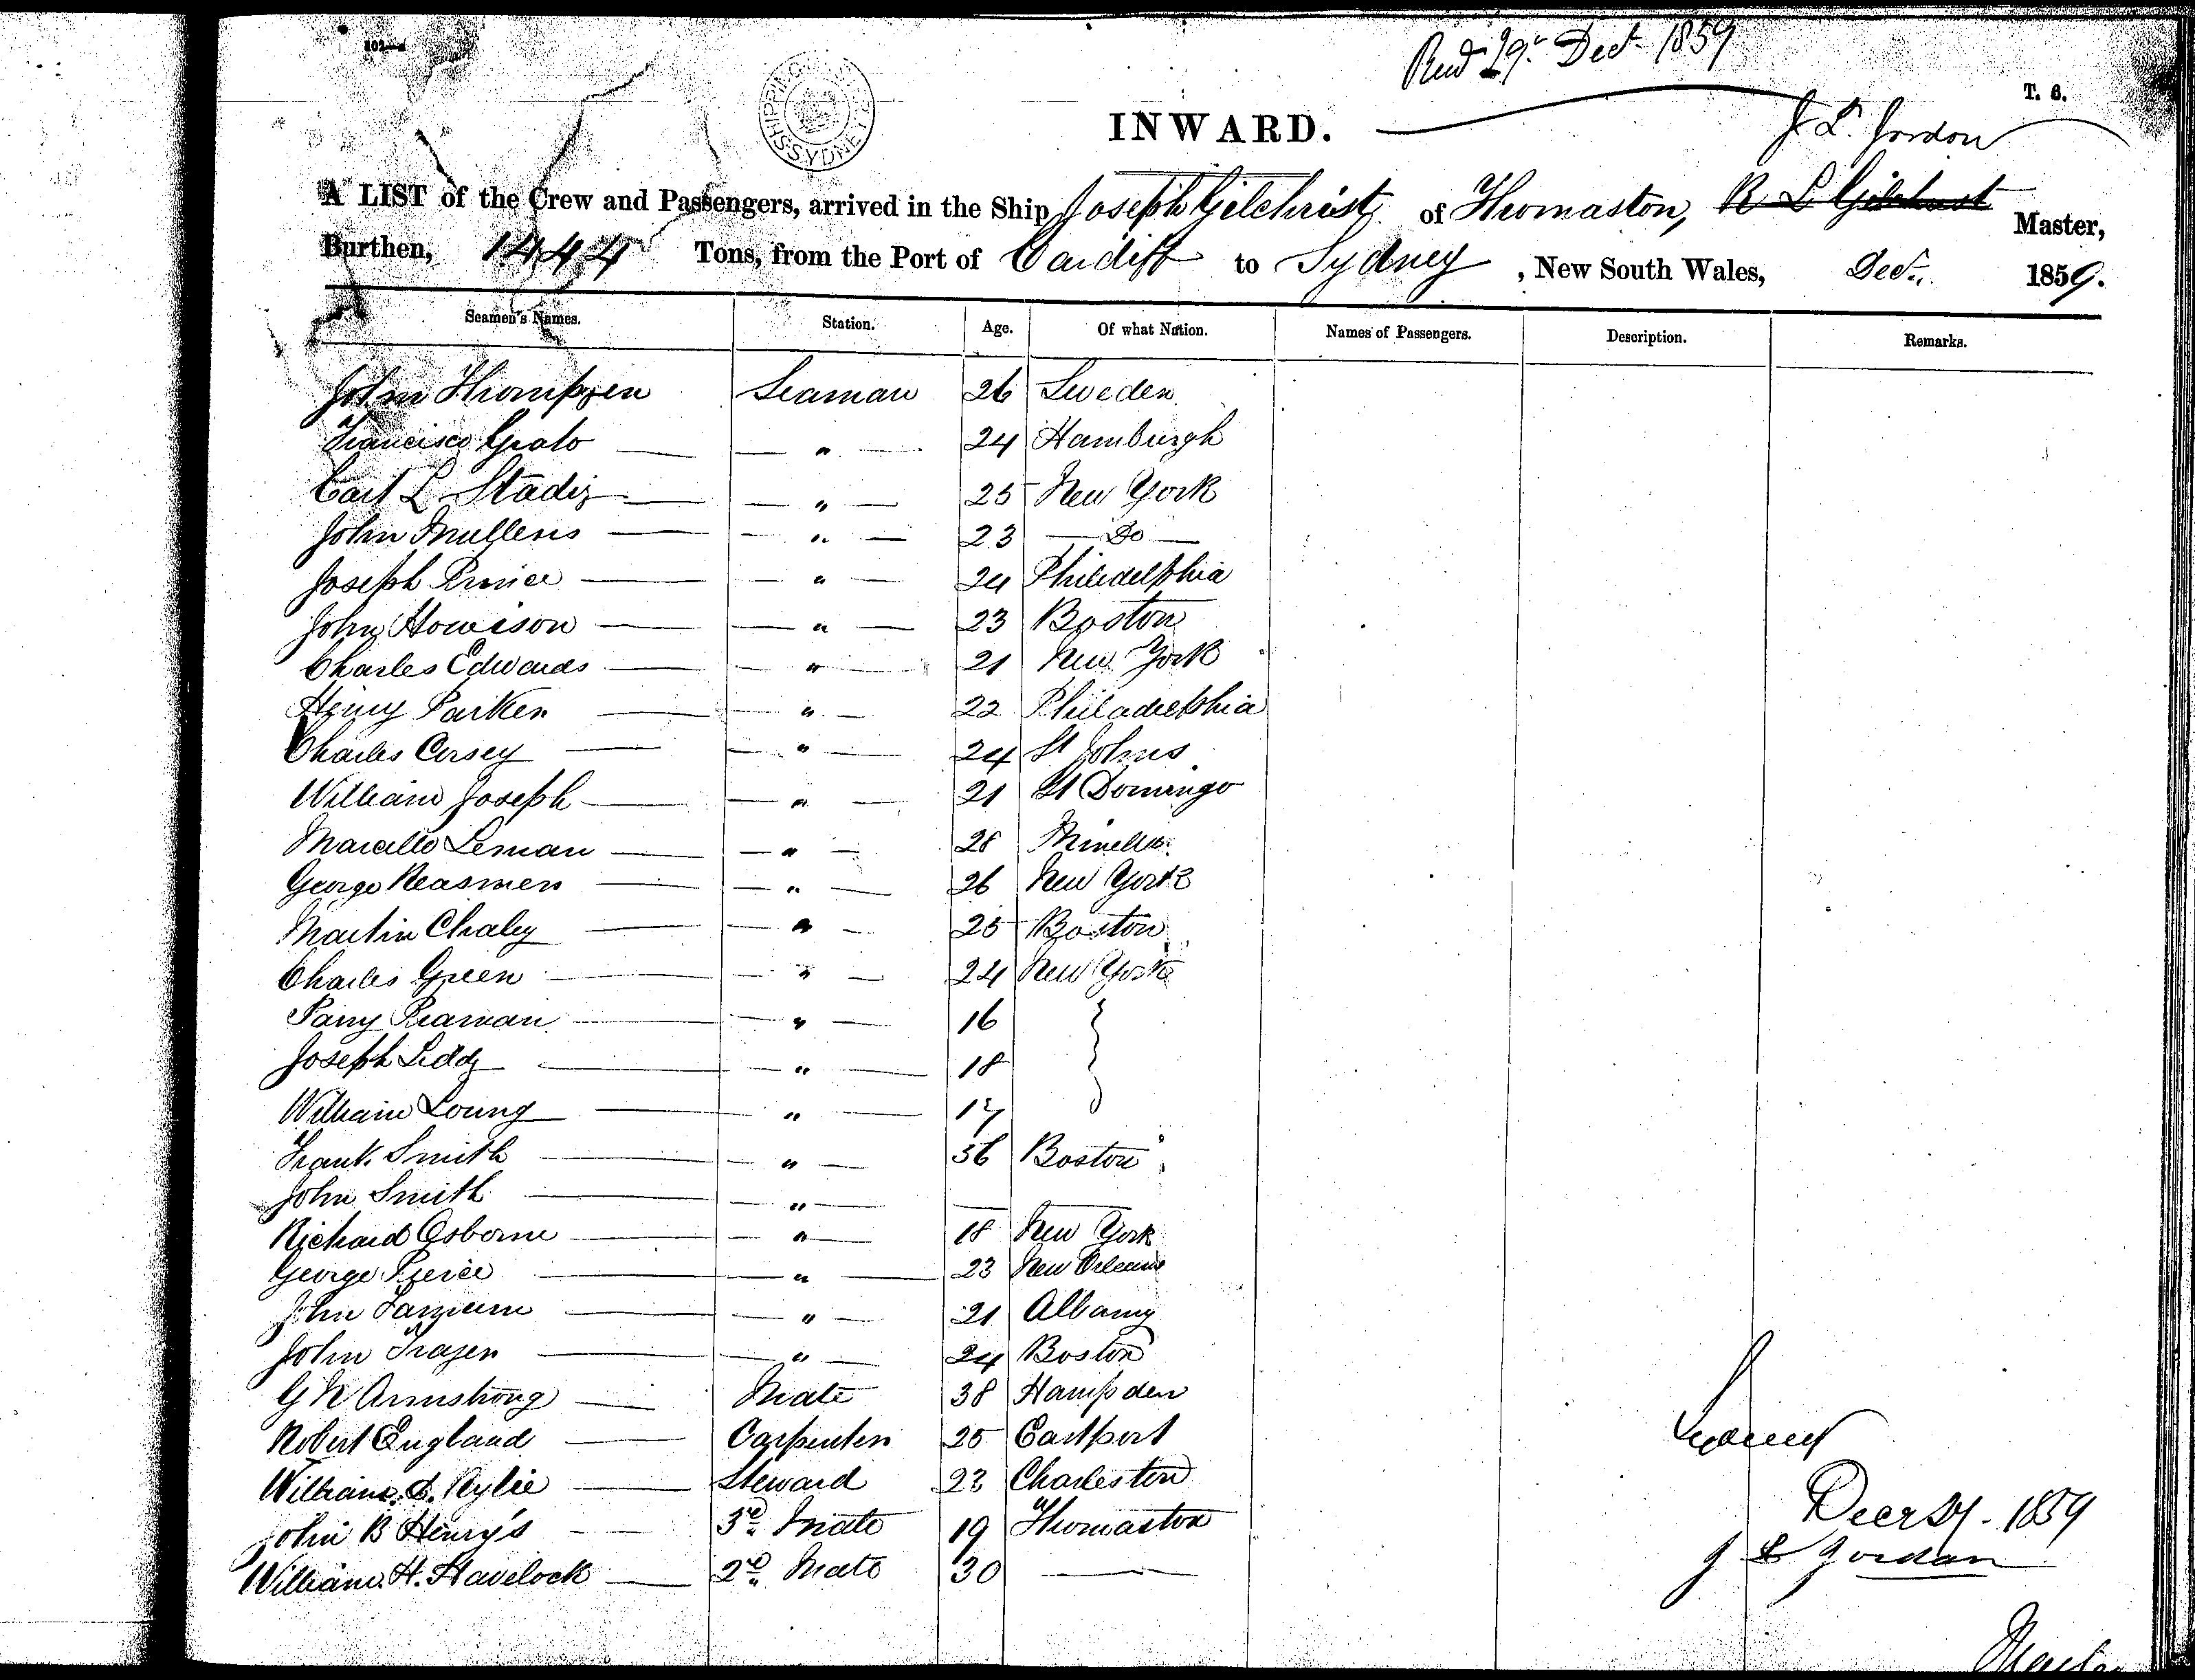 Recd 29th Dec 1859
T. 6.
SHIPPING SYDNEY
INWARD.
J. L. Gordon
A LIST of the Crew and Passengers, arrived in the Ship Joseph Gilchrist of Thomaston, R L Gilchrist Master,
Burthen, 1444 Tons, from the Port of Cardiff to Sydney, New South Wales, Dec. 1859.
Seamen's Names. Station. Age. Of what Nation. Names of Passengers. Description. Remarks.
John Thompsen Seaman 26 Sweden
Francisco Grato " 24 Hamburgh
Carl L " 25 New York
John Mullens " 23 Do
Joseph Prince " 24 Philidelphia
John Howison " 23 Boston
Charles Edwards " 21 New York
Henry Parker " 22 Philadelphia
Charles Cersey " 24 St Johns
William Joseph " 21 St Domingo
Marcello Leman " 28
George " 26 New York
Martin Chaley " 25 Boston
Charles Green " 24 New York
" 16
Joseph " 18
William " 17
Frank Smith " 36 Boston
John Smith "
Richard Osborne " 18 New York
George Pierce " 23 New Orleans
John " 21 Albany
John Frazer " 24 Boston
G N Armstrong Mate 38 Hampden
Robert England Carpenter 25 Eastport
William Kylie Steward 22 Charleston
John B Henry's 3d Mate 19 Thomaston
William H. Havelock 2d Mate 30
Sydney
Decr 29. 1859
J L Gordon